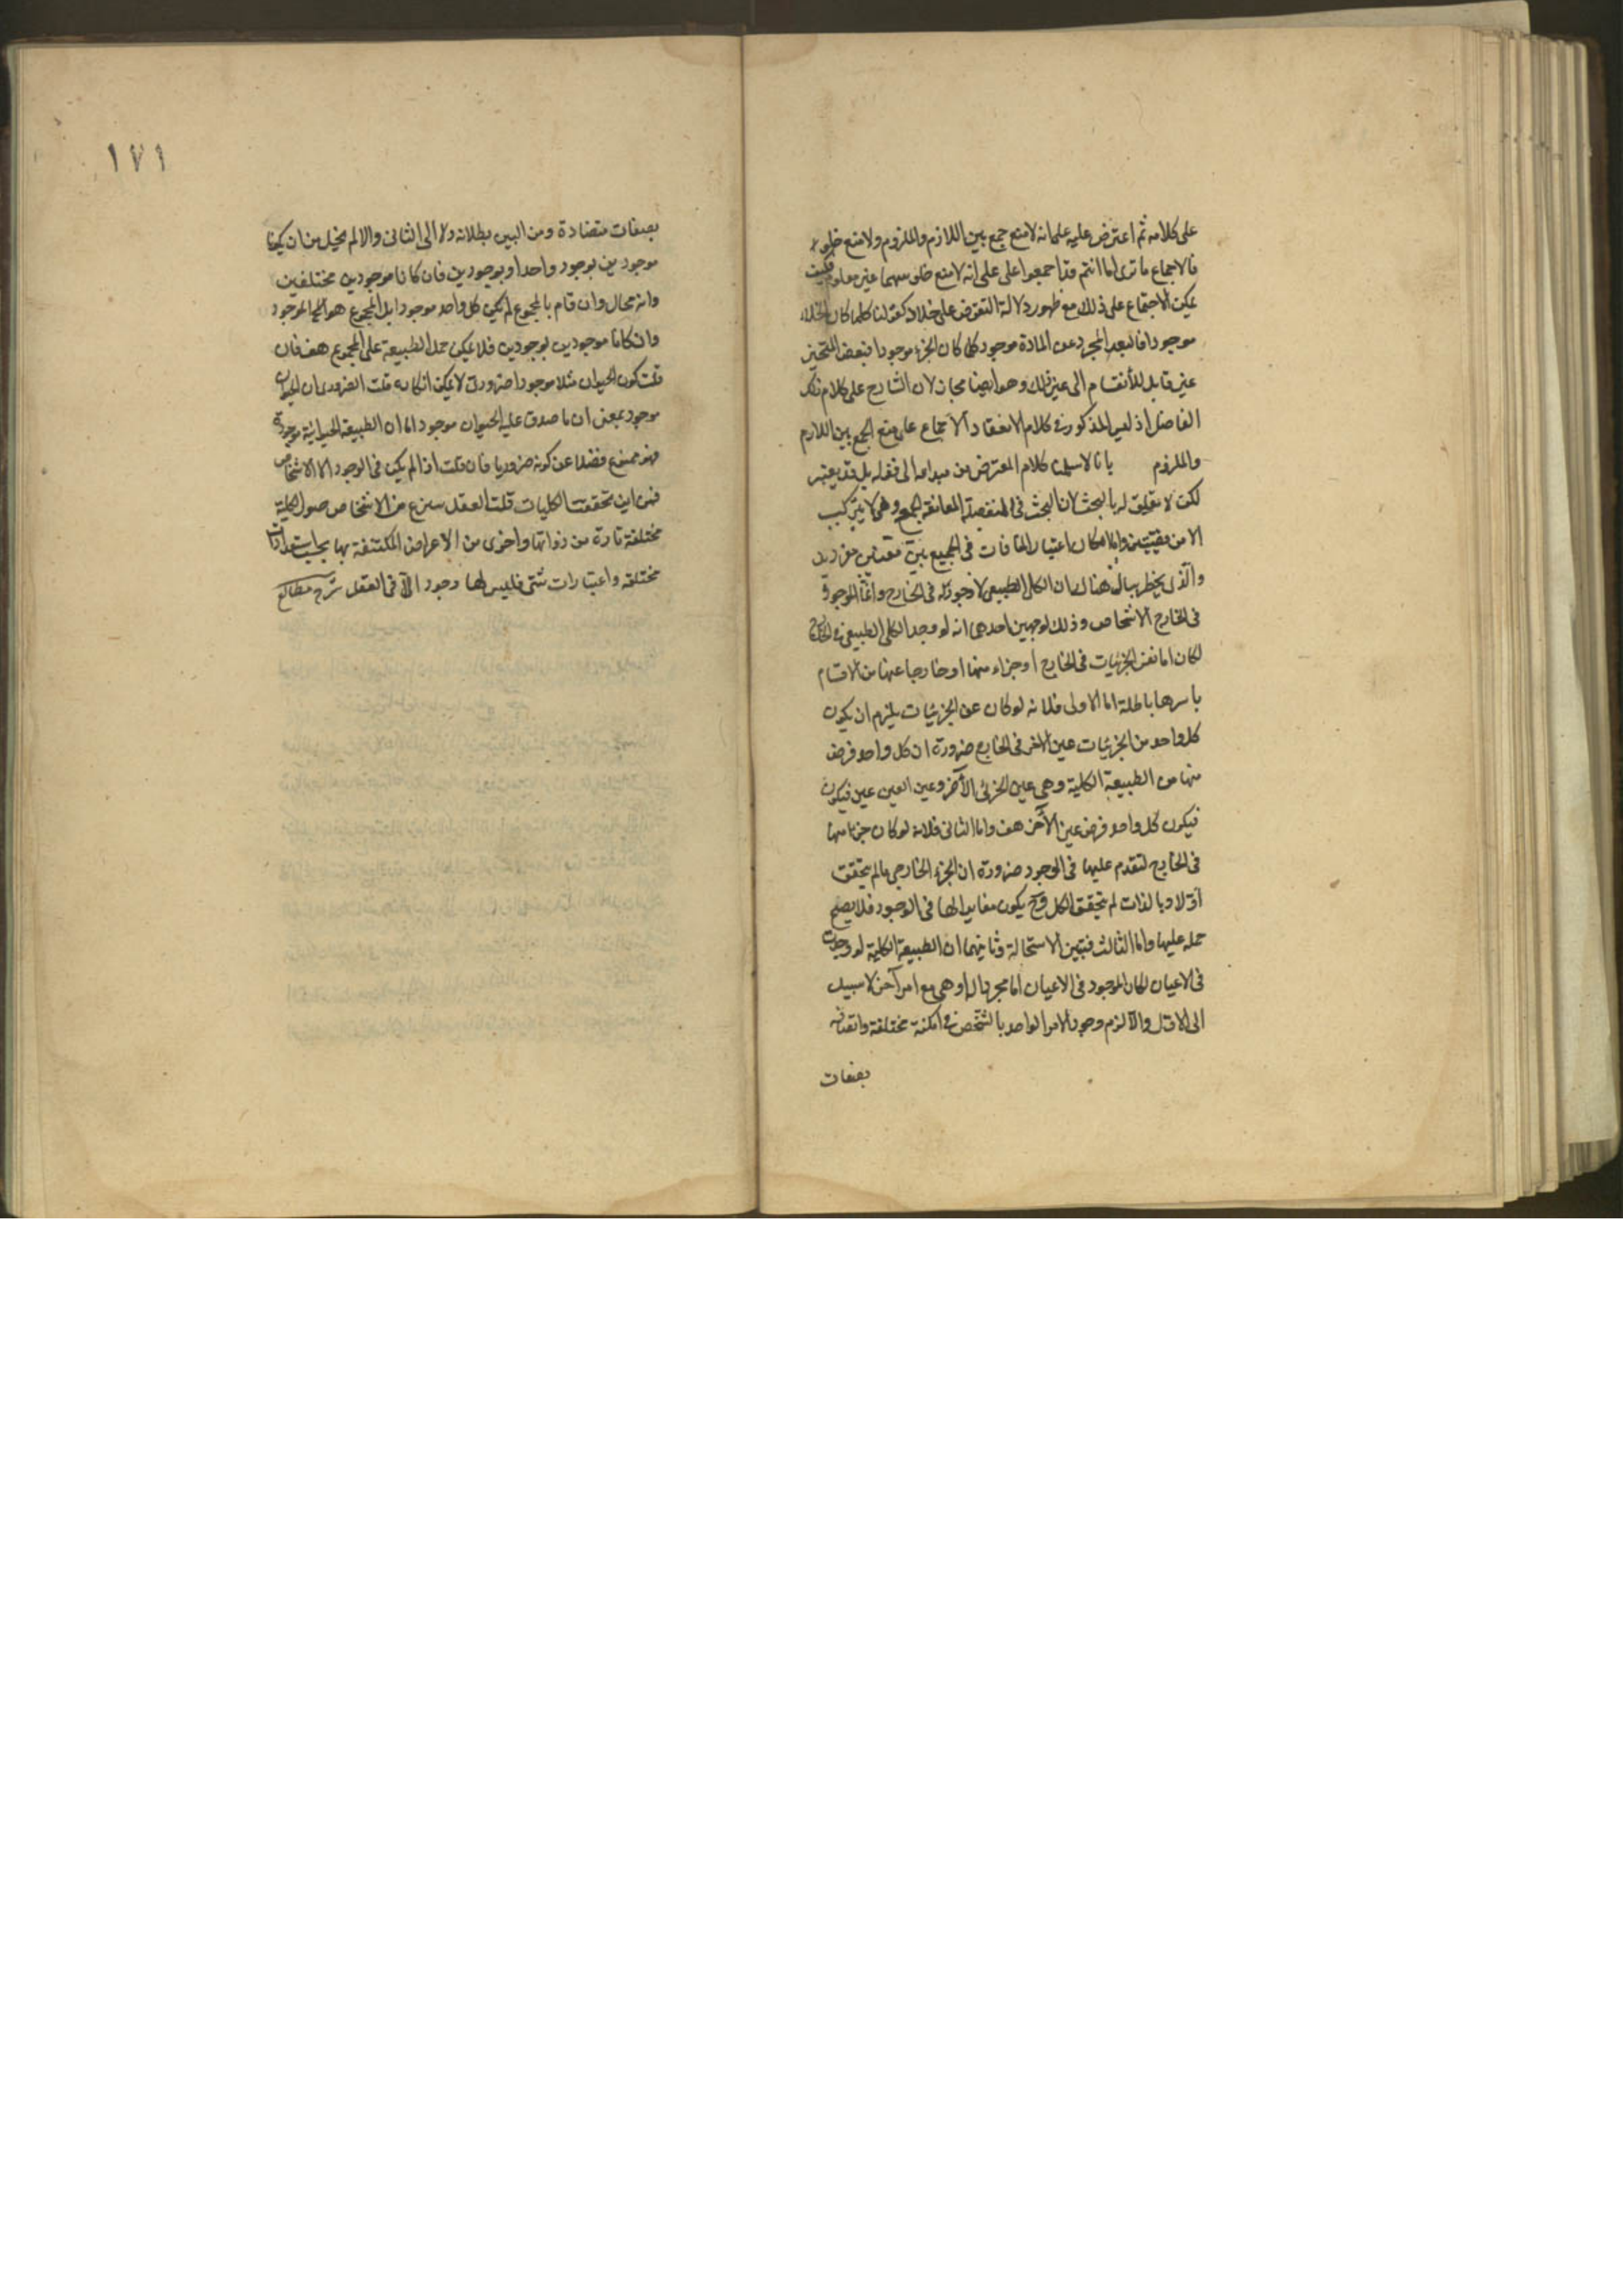 على كلامه ثم اعترض عليه علمانه لامنع جمع بين اللازم والملزوم ولا منع خلو
فالاجماع ما ترى اما انتم قد اجمعوا على على انه لا منع خلو منهما غير معلوم فكيف
يمكن الاجتماع على ذلك مع ظهور دلالة النقوض على خلاد كقولنا كلما كان الخلاء
موجودا فالبعد المجرد عن المادة موجود كلما كان الجزء موجودا فبعض المتحيز
غير قابل للأنقسام الى غير ذلك وهو ايضا مجاز لان الشارح على كلام ذلك
الفاضل اذ ليس المذكور في كلام الانعقاد الاجماع على منع الجمع بين اللازم
والملزوم بانا لا سلمنا كلام المعترض من مبدأه الى قوله بل قد يعتبر
لكن لا تعلق له بالبحث لان البحث في المنفصلة المانعة الجمع وهى لا يتركب
الا من قضيتين واما امكان اعتبار المنافات في الجميع بين مفردين
والذى يخطر ببالى هناك ان الكلى الطبيعى لا وجود له فى الخارج وانما الموجود
فى الخارج الاشخاص وذلك لوجهين احدهما انه لو وجد الكلى الطبيعى فى الخارج
لكان اما نفس الجزئيات فى الخارج او جزاء منها او خارجا عنها من الاقسام
باسرها باطلة اما الاولى فلانه لو كان عين الجزئيات يلزم ان يكون
كل واحد من الجزئيات عين الاخر فى الخارج ضرورة ان كل واحد فرض
منها من الطبيعة الكلية وهى عين الجزئى الآخر وعين العين عين فيكون
فيكون كل واحد فرض عين الآخر هف واما الثانى فلانه لو كان جزءا منها
فى الخارج لتقدم عليها فى الوجود ضرورة ان الجزء الخارجى مالم يتحقق
اولا وبالذات لم يتحقق الكل وح يكون مغايرا لها فى الوجود فلا يصح
حمله عليها واما الثالث فبين الاستحالة وثانيهما ان الطبيعة الكلية لو وجدت
فى الاعيان لكان الموجود فى الاعيان اما مجردها او هى مع امر آخر لا سبيل
الى الاول والا لزم وجود الامر الواحد بالشخص فى امكنة مختلفة واتصافه
بصفات
١٧١
بصفات متضادة ومن البين بطلانه ولا الى الثانى والا لم يخل من ان يكونا
موجودين بوجود واحد او بوجودين فان كانا موجودين مختلفين
وانه محال وان قام بالمجموع لم يكن كل واحد موجودا بل المجموع هو الموجود
وان كانا موجودين بوجودين فلا يمكن حمل الطبيعة على المجموع هف فان
قلت كون الحيوان مثلا موجودا ضرورى لا يمكن انكاره قلت الضرورى ان الحيوان
موجود بمعنى ان ما صدق عليه الحيوان موجود اما ان الطبيعة الحيوانية موجودة
فهو ممنوع فضلا عن كونه ضروريا فان قلت اذا لم يكن فى الوجود الا الاشخاص
فمن اين تحققت الكليات قلت العقل ينتزع من الاشخاص صورا كلية
مختلفة تارة من ذواتها واخرى من الاعراض المكتنفة بها بحسب استعدادات
مختلفة واعتبارات شتى فليس لها وجود الا فى العقل شرح مطالع